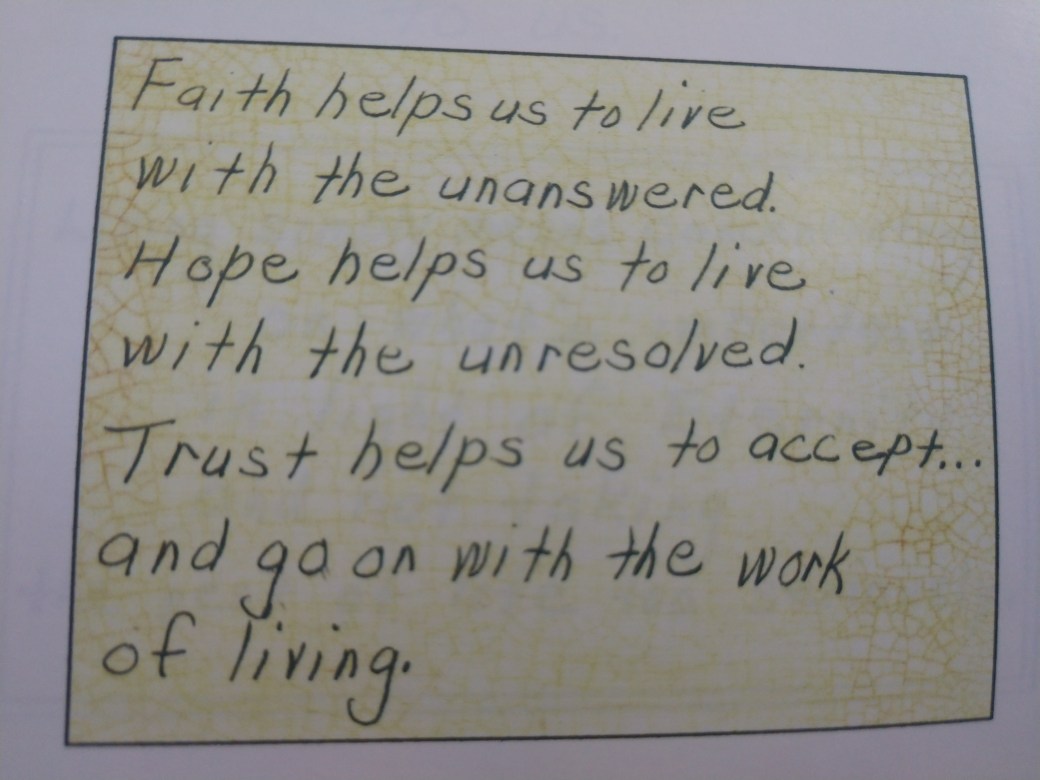 Faith helps us to live
with the unanswered.
Hope helps us to live
with the unresolved.
Trust helps us to accept...
and go on with the work
of living.